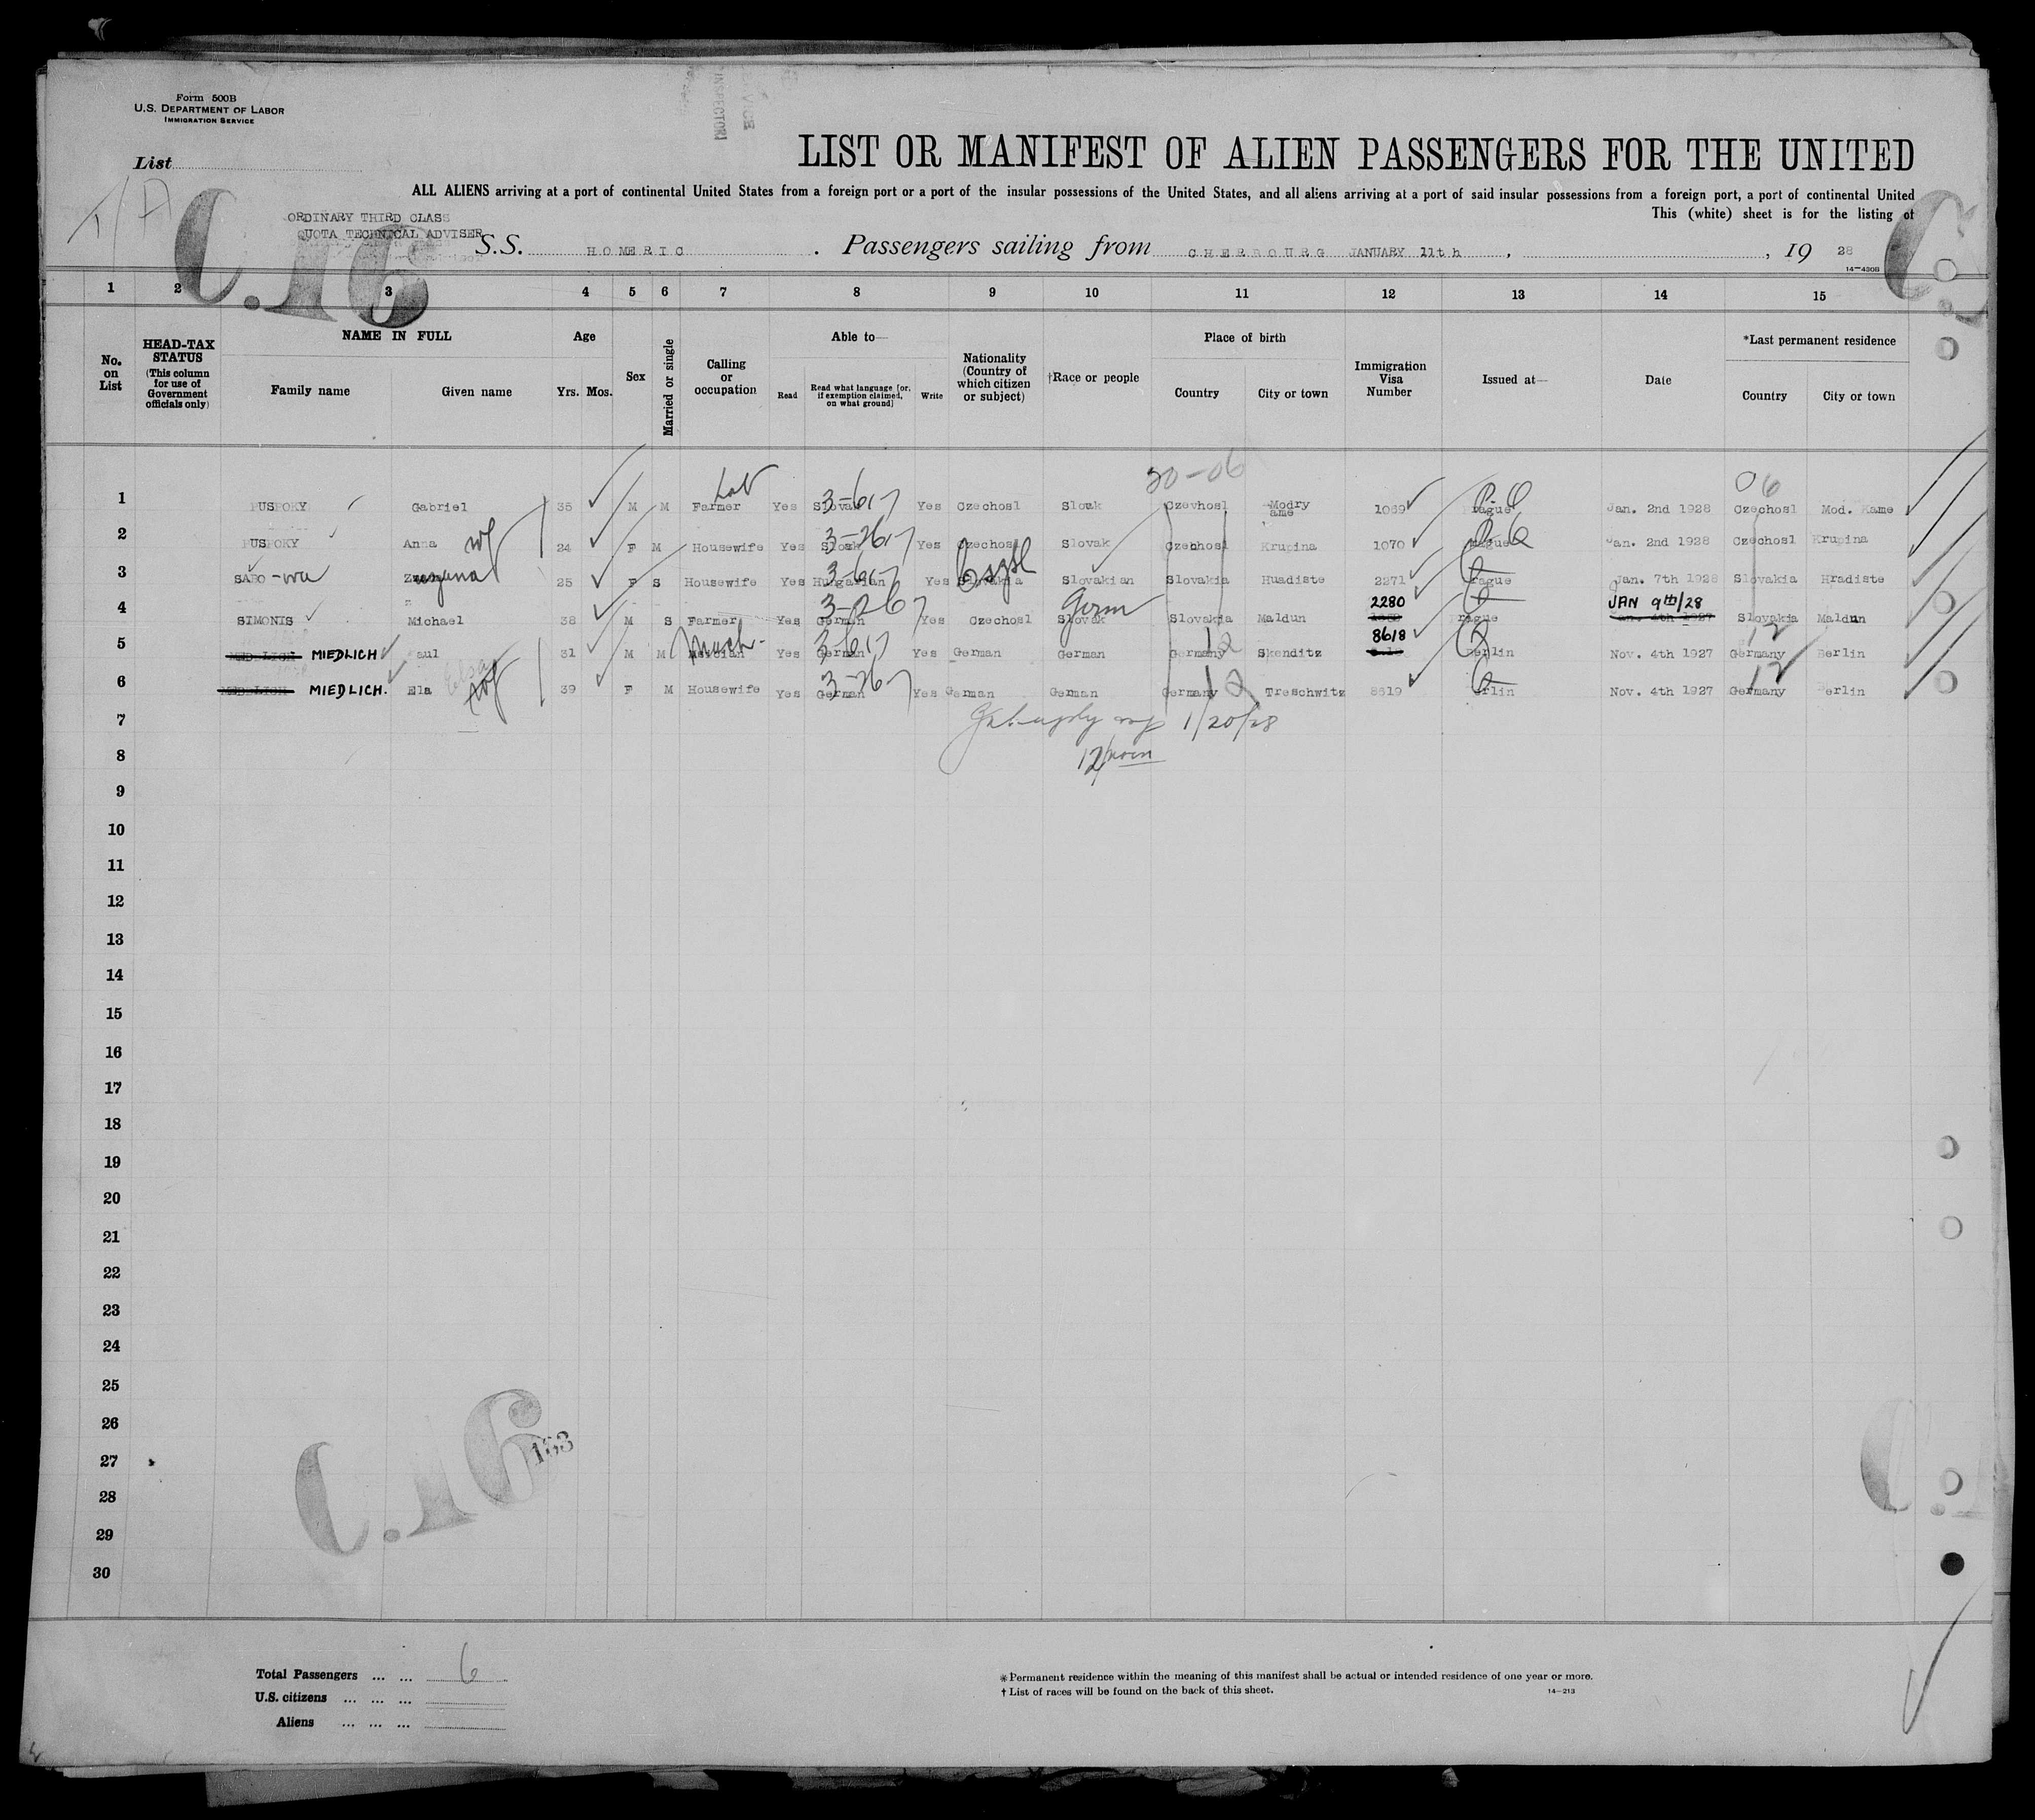 Form 500B
U.S. DEPARTMENT OF LABOR
IMMIGRATION SERVICE
List
LIST OR MANIFEST OF ALIEN PASSENGERS FOR THE UNITED
ALL ALIENS arriving at a port of continental United States from a foreign port or a port of the insular possessions of the United States, and all aliens arriving at a port of said insular possessions from a foreign port, a port of continental United
This (white) sheet is for the listing of
ORDINARY THIRD CLASS
QUOTA TECHNICAL ADVISER
C.16
S.S. HOMERIC. Passengers sailing from CHERBOURG JANUARY 11th, , 19 28
14-430B
1 2 3 4 5 6 7 8 9 10 11 12 13 14 15
No. on List
HEAD-TAX STATUS (This column for use of Government officials only)
NAME IN FULL
Family name Given name
Age
Yrs. Mos.
Sex
Married or single
Calling or occupation
Able to—
Read Read what language [or, if exemption claimed, on what ground] Write
Nationality (Country of which citizen or subject)
†Race or people
Place of birth
Country City or town
Immigration Visa Number
Issued at—
Date
*Last permanent residence
Country City or town
20-06 06
1 PUSPOKY Gabriel 35 M M Farmer Lab Yes Slovak 3-617 Yes Czechosl Slovak Czevhosl Modry ame 1069 rague Jan. 2nd 1928 Czechosl Mod. Kame
2 PUSPOKY Anna wf 24 F M Housewife Yes Slovak 3-2617 Yes Czechosl Slovak Czehhosl Krupina 1070 rague Jan. 2nd 1928 Czechosl Krupina
3 SABO-ova 25 F S Housewife Yes Hungarian 3-617 Yes Slovakia Slovakian Slovakia Huadiste 2271 rague Jan. 7th 1928 Slovakia Hradiste
4 SIMONIS Michael 38 M S Farmer Yes German 3-267 Yes Czechosl Slovak Germ Slovakia Maldun 2280 rague JAN 9th/28 Slovakia Maldun
5 MIEDLICH aul 31 M M Mech. Yes German 3-617 Yes German German Germany 12 Skenditz 8618 erlin Nov. 4th 1927 Germany 12 Berlin
6 MIEDLICH. Ela wf 39 F M Housewife Yes German 3-267 Yes German German Germany 12 Treschwitz 8619 erlin Nov. 4th 1927 Germany 12 erlin
7 1/20/28
8 12/noon
9
10
11
12
13
14
15
16
17
18
19
20
21
22
23
24
25
26
27
28
29
30
C.16
163
Total Passengers ... ... 6
U.S. citizens ... ... ...
Aliens ... ... ...
*Permanent residence within the meaning of this manifest shall be actual or intended residence of one year or more.
† List of races will be found on the back of this sheet.
14-213